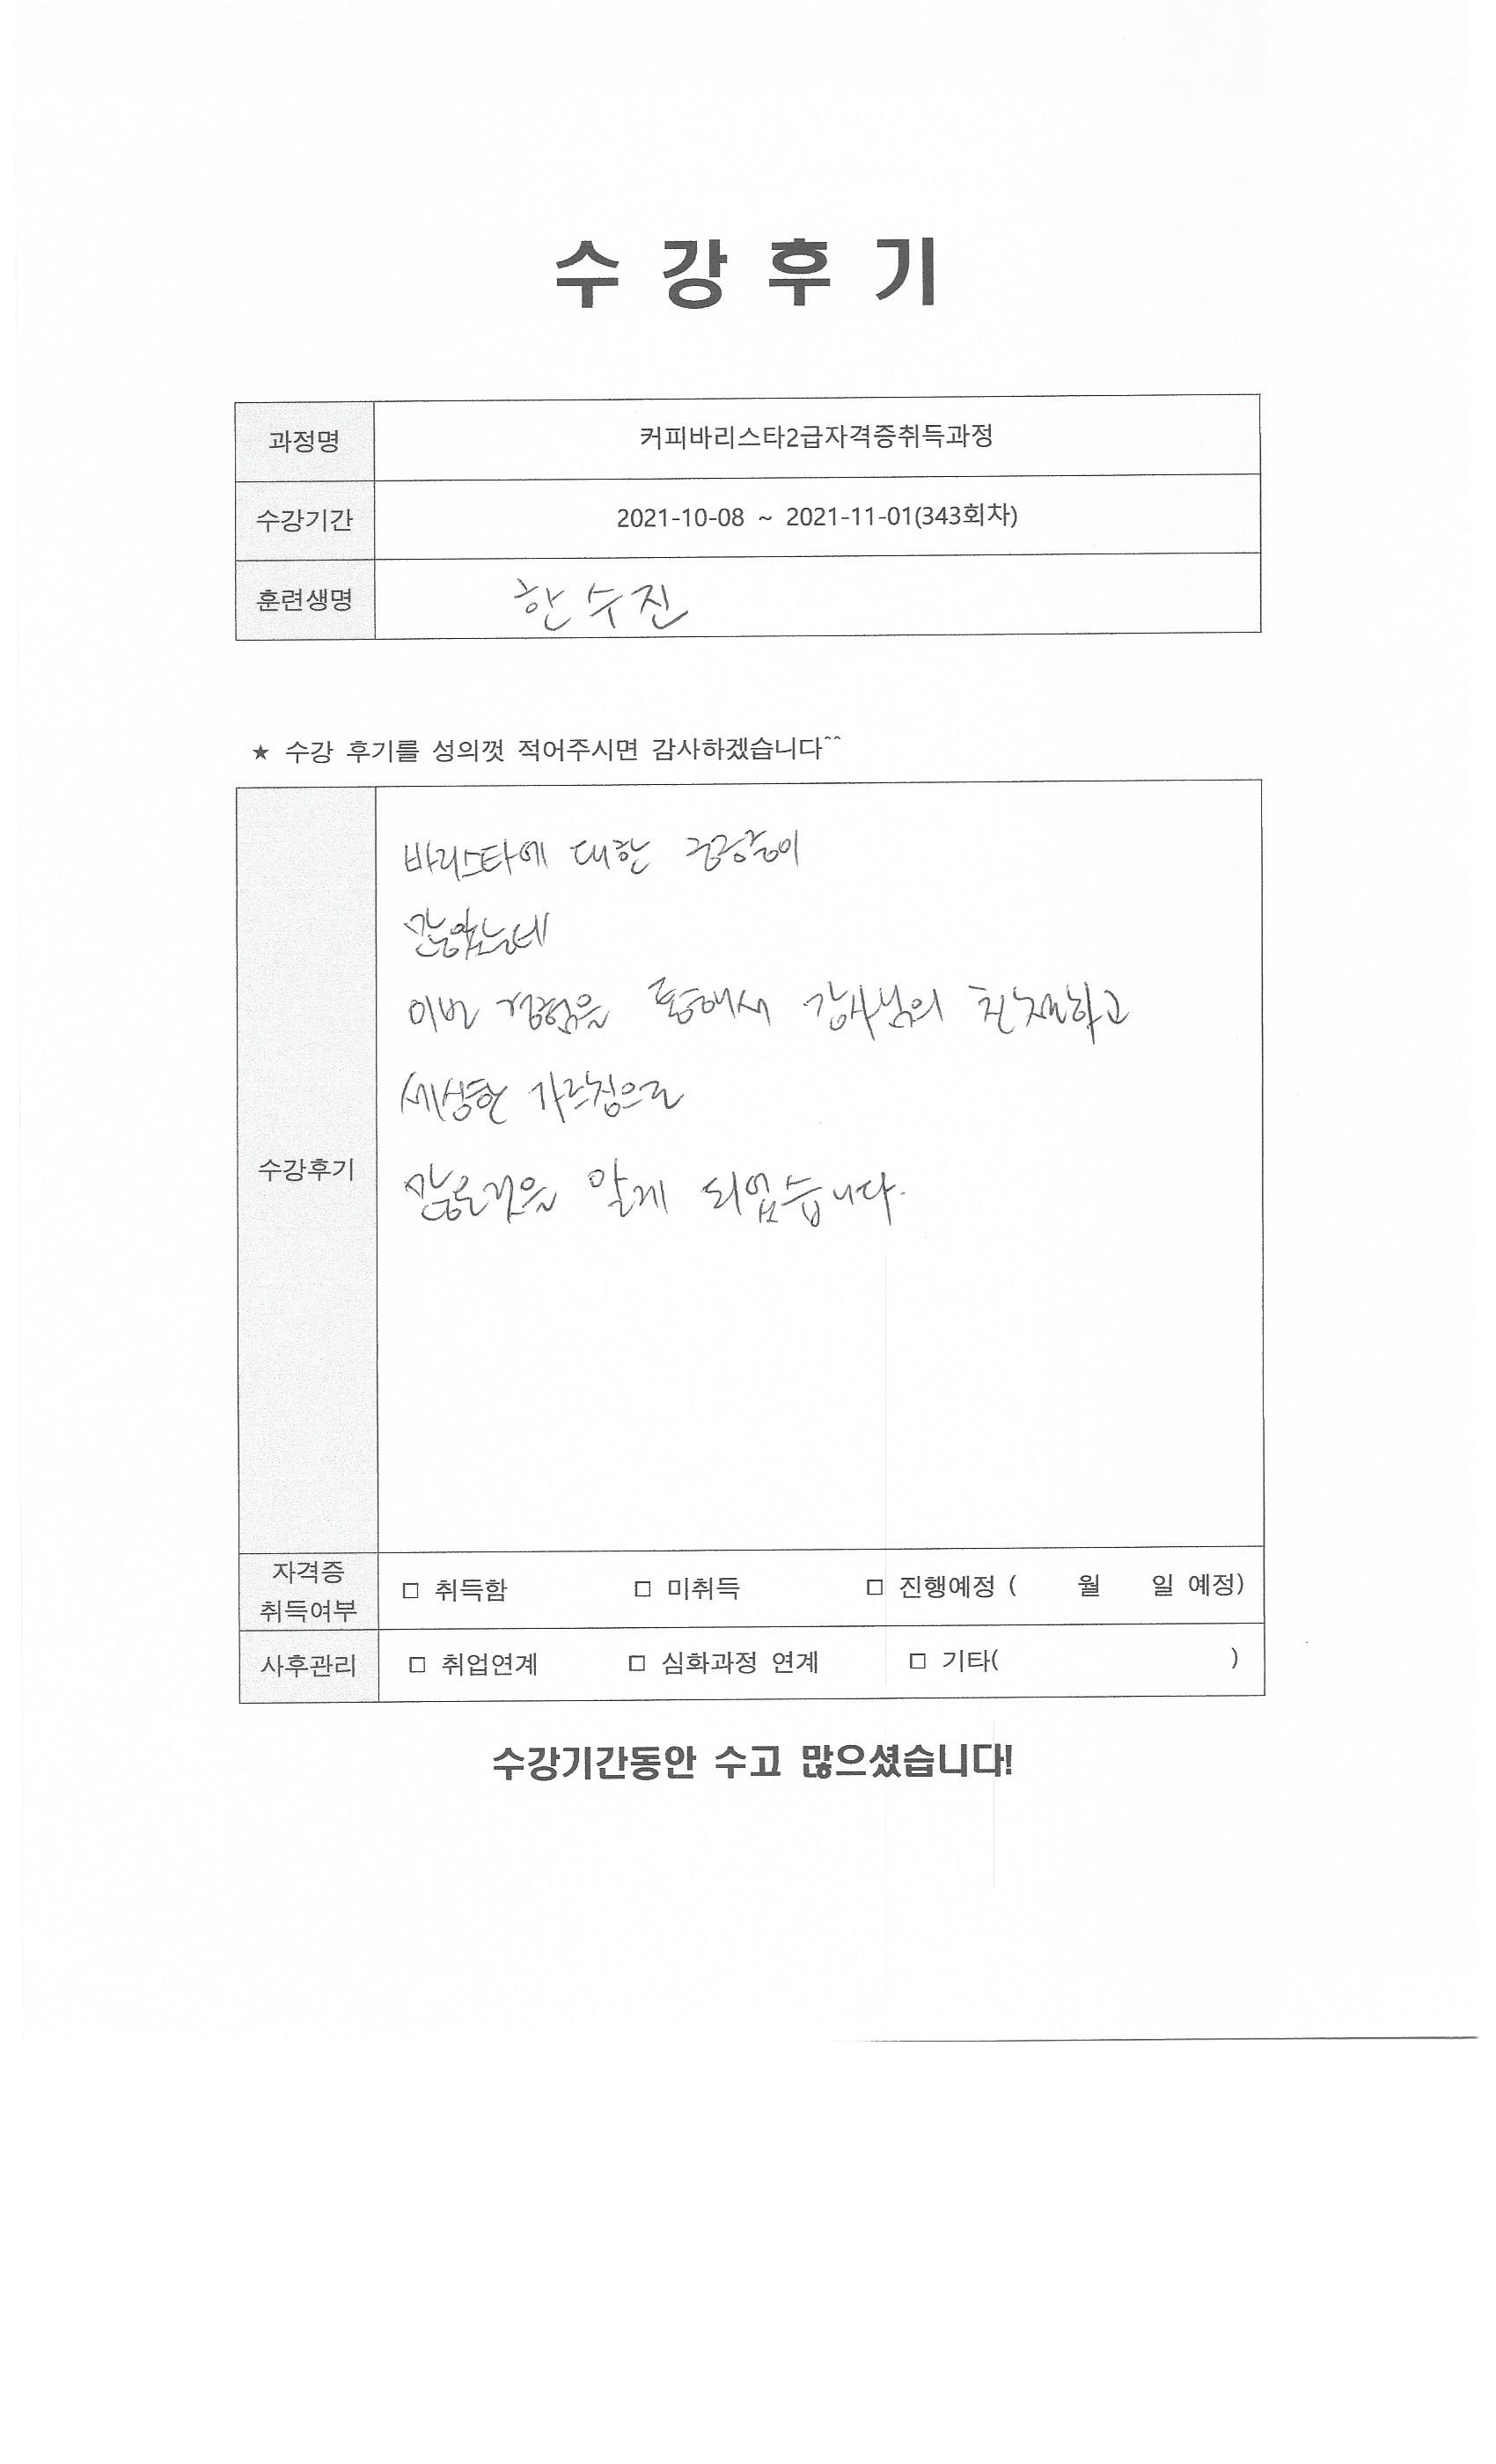 수 강 후 기
과정명 커피바리스타2급자격증취득과정
수강기간 2021-10-08 ~ 2021-11-01(343회차)
훈련생명 한수진
★ 수강 후기를 성의껏 적어주시면 감사하겠습니다^^
수강후기
바리스타에 대한 궁금증이
많았는데
이번 경험을 통해서 강사님의 친절하고
세심한 가르침으로
많은것을 알게 되었습니다.
자격증 취득여부 □ 취득함 □ 미취득 □ 진행예정 ( 월 일 예정)
사후관리 □ 취업연계 □ 심화과정 연계 □ 기타( )
수강기간동안 수고 많으셨습니다!